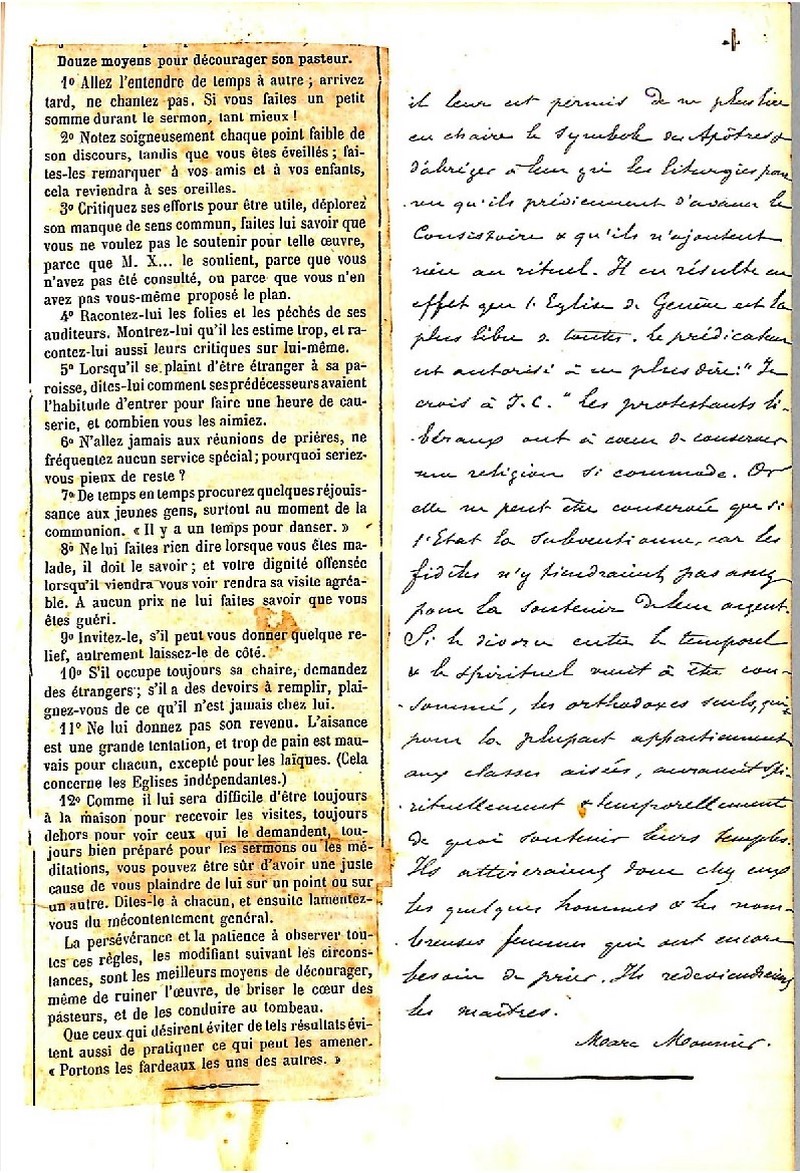 4
Douze moyens pour décourager son pasteur.
1º Allez l'entendre de temps à autre ; arrivez
tard, ne chantez pas. Si vous faites un petit
somme durant le sermon, tant mieux !
2º Notez soigneusement chaque point faible de
son discours, tandis que vous êtes éveillés ; fai-
tes-les remarquer à vos amis et à vos enfants,
cela reviendra à ses oreilles.
3º Critiquez ses efforts pour être utile, déplorez
son manque de sens commun, faites lui savoir que
vous ne voulez pas le soutenir pour telle œuvre,
parce que M. X... le soutient, parce que vous
n'avez pas été consulté, ou parce que vous n'en
avez pas vous-même proposé le plan.
4º Racontez-lui les folies et les péchés de ses
auditeurs. Montrez-lui qu'il les estime trop, et ra-
contez-lui aussi leurs critiques sur lui-même.
5º Lorsqu'il se plaint d'être étranger à sa pa-
roisse, dites-lui comment ses prédécesseurs avaient
l'habitude d'entrer pour faire une heure de cau-
serie, et combien vous les aimiez.
6º N'allez jamais aux réunions de prières, ne
fréquentez aucun service spécial ; pourquoi seriez-
vous pieux de reste ?
7º De temps en temps procurez quelques réjouis-
sance aux jeunes gens, surtout au moment de la
communion. « Il y a un temps pour danser. »
8º Ne lui faites rien dire lorsque vous êtes ma-
lade, il doit le savoir ; et votre dignité offensée
lorsqu'il viendra vous voir rendra sa visite agréa-
ble. A aucun prix ne lui faites savoir que vous
êtes guéri.
9º Invitez-le, s'il peut vous donner quelque re-
lief, autrement laissez-le de côté.
10º S'il occupe toujours sa chaire, demandez
des étrangers ; s'il a des devoirs à remplir, plai-
gnez-vous de ce qu'il n'est jamais chez lui.
11º Ne lui donnez pas son revenu. L'aisance
est une grande tentation, et trop de pain est mau-
vais pour chacun, excepté pour les laïques. (Cela
concerne les Eglises indépendantes.)
12º Comme il lui sera difficile d'être toujours
à la maison pour recevoir les visites, toujours
dehors pour voir ceux qui le demandent, tou-
jours bien préparé pour les sermons ou les mé-
ditations, vous pouvez être sûr d'avoir une juste
cause de vous plaindre de lui sur un point ou sur
un autre. Dites-le à chacun, et ensuite lamentez-
vous du mécontentement général.
La persévérance et la patience à observer tou-
tes ces règles, les modifiant suivant les circons-
tances, sont les meilleurs moyens de décourager,
même de ruiner l'œuvre, de briser le cœur des
pasteurs, et de les conduire au tombeau.
Que ceux qui désirent éviter de tels résultats évi-
tent aussi de pratiquer ce qui peut les amener.
« Portons les fardeaux les uns des autres. »
il leur est permis de ne plus lire
en chaire le symbole des Apôtres &
d'abréger à leur gré les liturgies pour
vu qu'ils préviennent d'avance le
Consistoire & qu'ils n'ajoutent
rien au rituel. Il en résulte en
effet que l'Eglise de Genève est la
plus libre de toutes. Le prédicateur
est autorisé à ne plus dire: "Je
crois à J.C." Les protestants li-
béraux ont à cœur de conserver
une religion si commode. Or
elle ne peut être conservée que si
l'Etat la subventionne, car les
fidèles n'y tiendraient pas assez
pour la soutenir de leur argent.
Si le divorce entre le temporel
& le spirituel vient à être con-
sommé, les orthodoxes seuls, qui,
pour la plupart appartiennent
aux classes aisées, auraient spi-
rituellement & temporellement
de quoi soutenir leurs temples.
Ils attireraient donc chez eux
les quelques hommes & les nom-
breuses femmes qui ont encore
besoin de prier. Ils redeviendraient
les maîtres.
Marc Monnier.